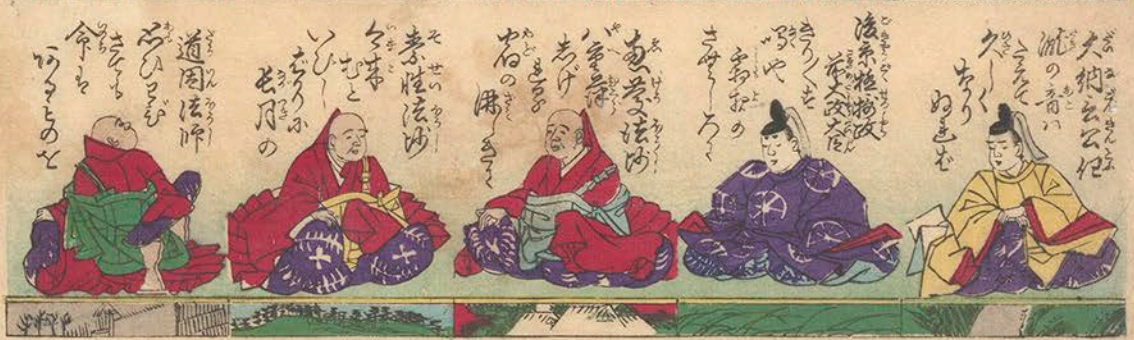 大納言公任
瀧の音ハ
たえて
久しく
なり
ぬれど
後京極摂政
前太政大臣
きり〳〵す
鳴や
霜夜の
さむしろに
恵慶法師
八重葎
しげ
れる
宿の
淋しきに
素性法師
今来
むと
いひし
ばかりに
長月の
道因法師
思ひわび
さても
命は
あるものを